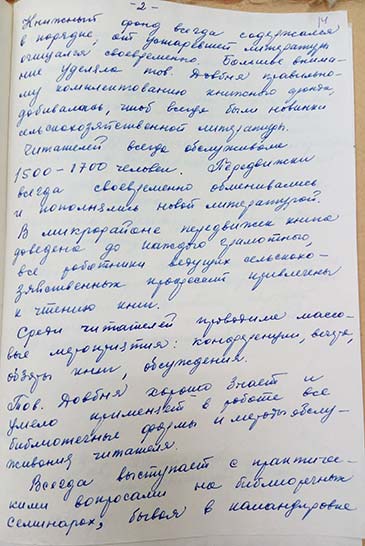 -2-
14
Книжный фонд всегда содержался
в порядке, от устаревшей литературы
очищался своевременно. Большое внима-
ние уделяла тов. Довбня правильно-
му комплектованию книжного фонда,
добивалась, чтоб всегда были новинки
сельскохозяйственной литературы.
Читателей всегда обслуживала
1500-1700 человек. Передвижки
всегда своевременно обменивались
и пополнялись новой литературой.
В микрорайоне передвижек книга
доведена до каждого грамотного,
все работники ведущих сельскохо-
зяйственных профессий привлечены
к чтению книг.
Среди читателей проводила массо-
вые мероприятия: конференции, вечера,
обзоры книг, обсуждения.
Тов. Довбня хорошо знает и
умело применяет в работе все
библиотечные формы и методы обслу-
живания читателя.
Всегда выступает с практичес-
кими вопросами на библиотечных
семинарах, бывая в командировке